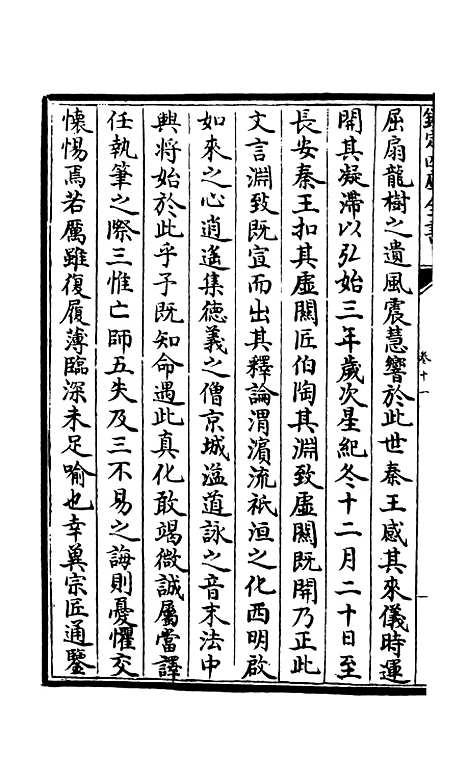 欽定四庫全書
卷十一
一
屈扇龍樹之遺風震慧響於此世秦王感其來儀時運
開其凝滯以弘始三年歲次星紀冬十二月二十日至
長安秦王扣其虛關匠伯陶其淵致虛關既開乃正此
文言淵致既宣而出其釋論渭濵流祇洹之化西明啟
如來之心逍遙集德義之僧京城溢道詠之音末法中
興將始於此乎予既知命遇此真化敢竭微誠屬當譯
任執筆之際三惟亡師五失及三不易之誨則憂懼交
懷惕焉若厲雖復履薄臨深未足喻也幸冀宗匠通鑒